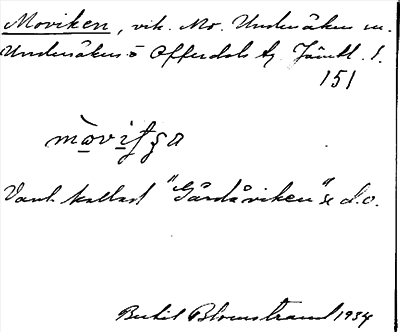 Moviken, vik. Mo. Undersåkers sn.
Undersåkers o Offerdals tg. Jämtl. l.
151
Vanl. kallad "Gårdåviken" se d.o.
Bertil Blomstrand 1934